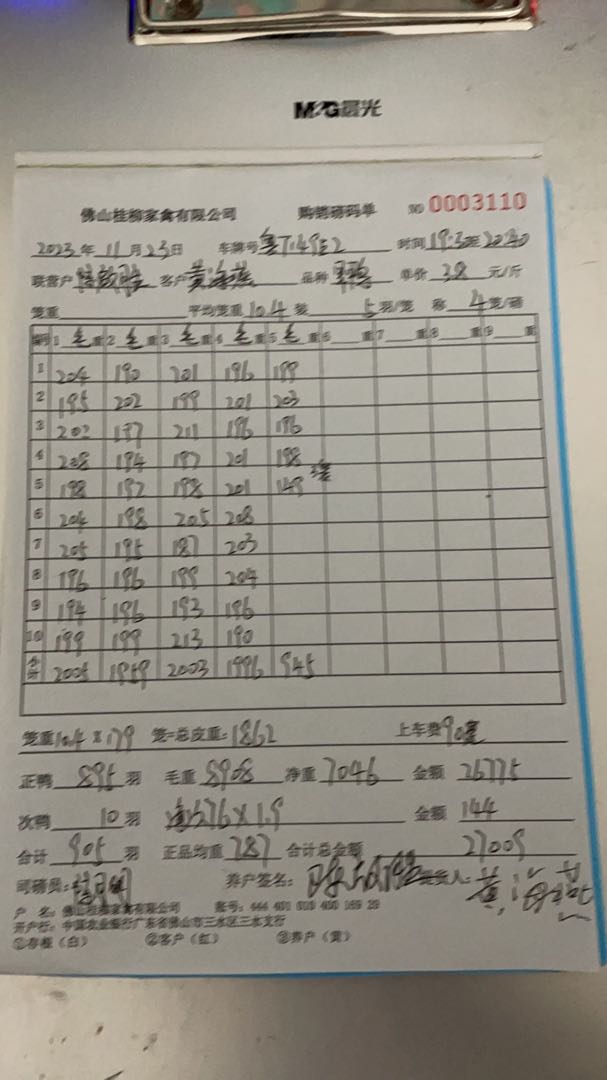 M&G晨光
佛山桂柳家禽有限公司 购销磅码单 NO 0003110
2023年11月23日 车牌号 时间19:30至20:30
联营户 客户 品种 单价 3.8 元/斤
笼重 平均笼重10.4 装 5 羽/笼 称 4 笼/磅
编号 1 毛重 2 毛重 3 毛重 4 毛重 5 毛重 6 重 7 重 8 重 9 重
1 204 190 201 196 199
2 195 202 199 201 203
3 202 197 211 196 196
4 208 194 197 201 198
5 198 192 198 201 149
6 204 198 205 208
7 205 195 187 203
8 196 196 199 204
9 194 196 193 196
10 199 199 213 190
小计 2005 1959 2003 1996 945
笼重10.4 x 179 笼=总皮重:1862 上车费90
正鸭 895 羽 毛重 8908 净重 7046 金额 26775
次鸭 10 羽 76×1.9 金额 144
合计 905 羽 正品均重 7.87 合计总金额 27009
司磅员: 养户签名: 提货人:
户 名:佛山桂柳家禽有限公司 账号:
开户行:中国农业银行广东省佛山市三水区三水支行
①存根(白) ②客户(红) ③养户(黄)